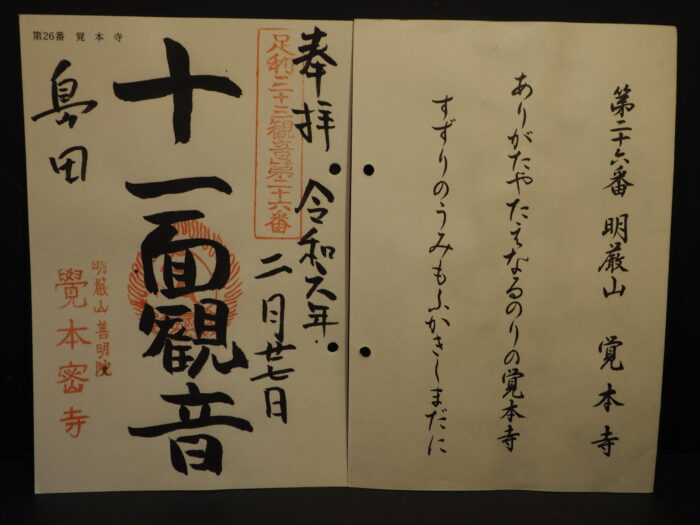 第二十六番 明厳山 覚本寺
ありがたやたえなるのりの覚本寺
すずりのうみもふかきしまだに
第26番 覚本寺
奉拝 令和六年
二月廿七日
足利三十三観音第二十六番
十一面観音
島田
明厳山 善明院
覺本密寺